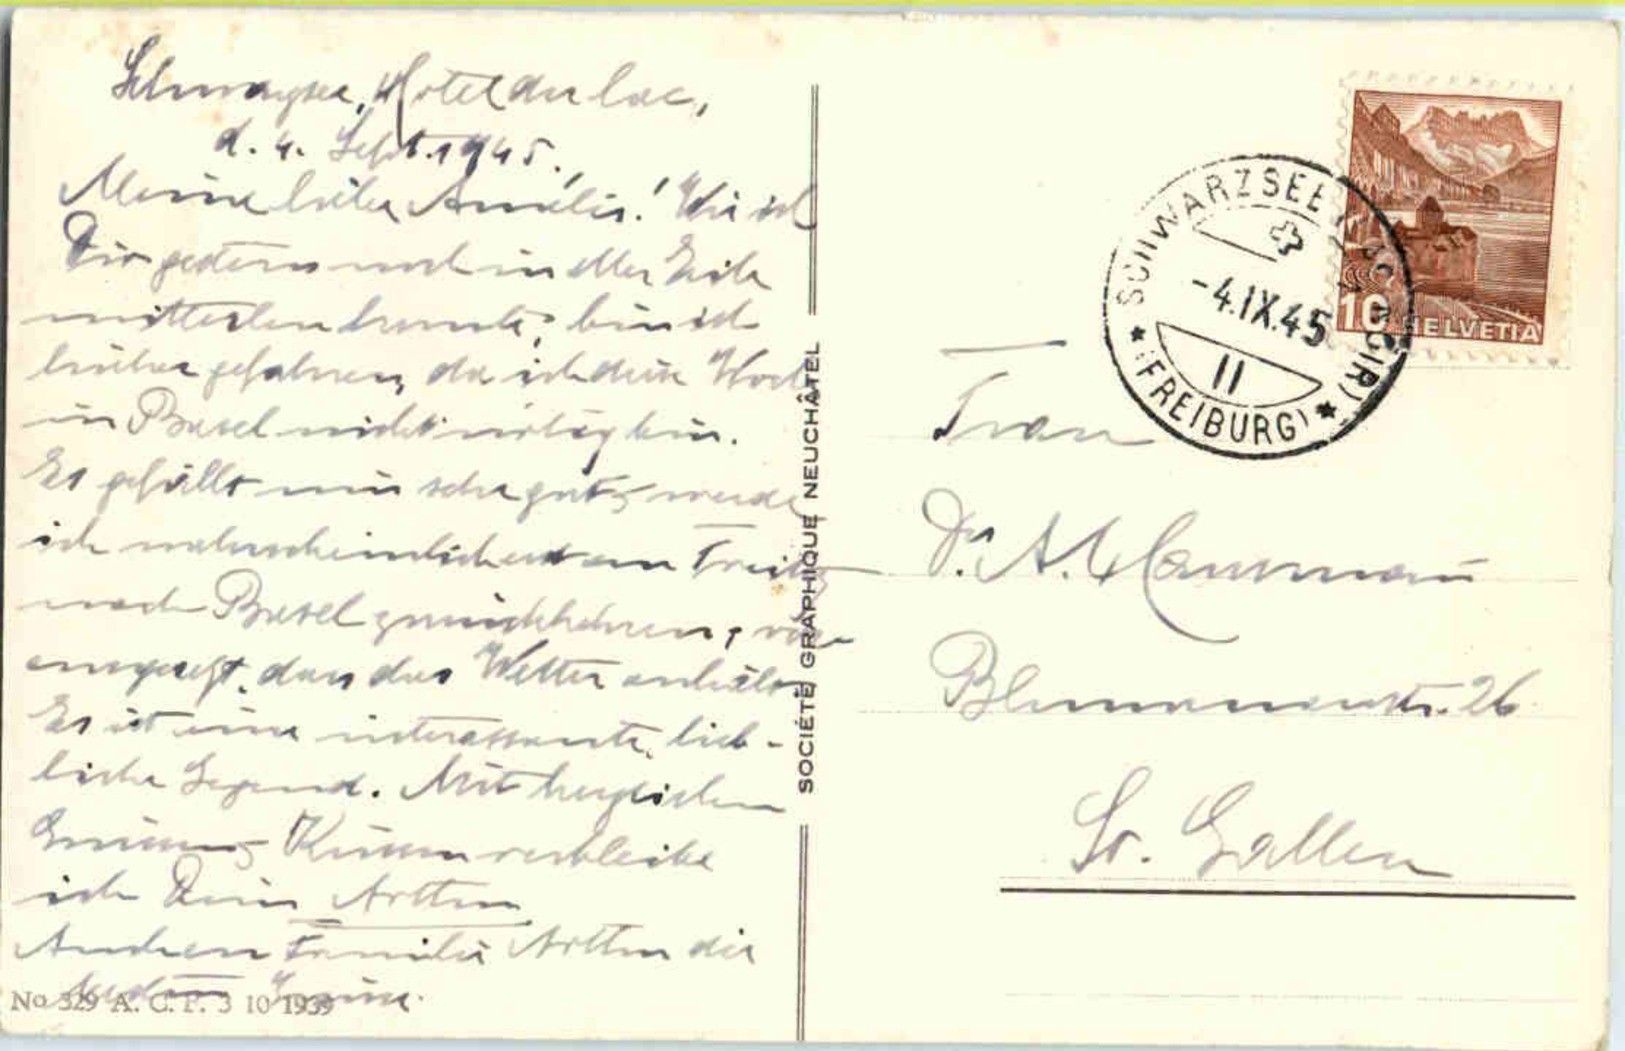 Schwarzsee, Hotel du Lac,
d. 4. Sept. 1945.
Meine liebe Amélie! Wie ich
Dir gestern noch in aller Eile
mitteilen konnte, bin ich
hieher gefahren, da ich diese Woche
in Basel nicht nötig bin.
Es gefällt mir sehr gut, werde
ich wahrscheinlich erst am Freitag
nach Basel zurückkehren, voraus-
gesetzt, dass das Wetter anhält.
Es ist eine interessante, lieb-
liche Gegend. Mit herzlichen
Grüssen & Küssen verbleibe
ich Dein Arthur
Familie Arthur die
Grüsse.
No 329 A. C. F. 3 10 1939
SOCIÉTÉ GRAPHIQUE NEUCHÂTEL
SCHWARZSEE
-4.IX.45
II
(FREIBURG)
10 HELVETIA
Frau
Dr. A. Hausmann
Blumenaustr. 26
St. Gallen